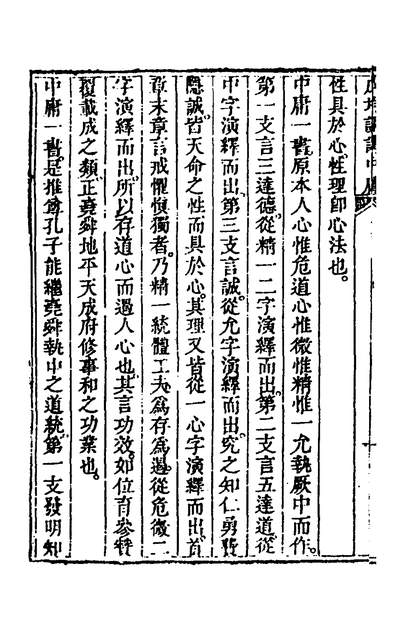 性具於心性理即心法也。
中庸一書原本人心惟危道心惟微惟精惟一允執厥中而作。
第一支言三達德從精一二字演繹而出。第二支言五達道從
中字演繹而出。第三支言誠。從允字演繹而出。究之知仁勇費
隱誠。皆天命之性而具於心。其理又皆從一心字演繹而出。首
章末章言戒懼愼獨者。乃精一統體工夫。為存為遏。從危微二
字演繹而出。所以存道心而遏人心也。其言功效。如位育參贊
覆載成之類。正堯舜地平天成府修事和之功業也。
中庸一書是推尊孔子能繼堯舜執中之道統。第一支發明知